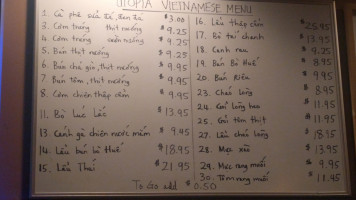 UTOPIA VIETNAMESE MENU
1. Cà phê sữa đá, đen đá $3.00
3. Cơm trứng thịt nướng $9.25
4. Cơm trứng sườn nướng $9.25
5. Bún thịt nướng $9.25
6. Bún chả giò, thịt nướng $9.95
7. Bún tôm, thịt nướng $9.95
8. Cơm chiên thập cẩm $9.95
11. Bò lúc lắc $13.95
13 Cánh gà chiên nước mắm $9.95
14. Lẩu bún bò huế $18.95
15. Lẩu Thái $21.95
16. Lẩu thập cẩm $25.95
17. Bò tái chanh $13.95
18. Canh rau $9.25
19. Bún Bò Huế $8.95
20. Bún Riêu $9.25
23. Cháo lòng $8.95
24. Gỏi lòng heo $11.95
25. Gỏi tôm thịt $11.95
27. Lẩu cháo lòng $18.95
28. Mực xào $13.95
29. Mực rang muối $9.95
30. Tôm rang muối $11.95
To Go add $0.50